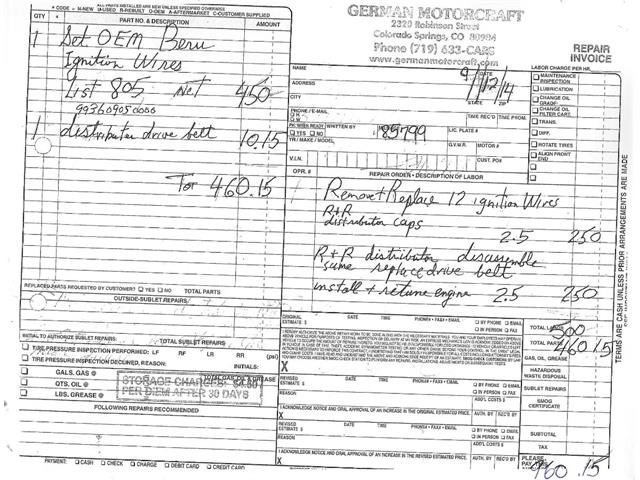 * CODE = N-NEW U-USED R-REBUILT O-OEM A-AFTERMARKET C-CUSTOMER SUPPLIED
QTY * PART NO. & DESCRIPTION AMOUNT
1 Set OEM Beru
Ignition Wires
List 805 Net 450
99360905000
1 distributor drive belt 10.15
Tot 460.15
REPLACED PARTS REQUESTED BY CUSTOMER? YES NO TOTAL PARTS
OUTSIDE-SUBLET REPAIRS
INITIAL TO AUTHORIZE SUBLET REPAIRS TOTAL SUBLET REPAIRS
TIRE PRESSURE INSPECTION PERFORMED: LF RF LR RR (psi)
TIRE PRESSURE INSPECTION DECLINED, REASON: INITIALS:
GALS. GAS @
QTS. OIL @
LBS. GREASE @
TOTAL GAS, OIL & GREASE
STORAGE CHARGES
PER DIEM AFTER 30 DAYS
FOLLOWING REPAIRS RECOMMENDED
PAYMENT: CASH CHECK CHARGE DEBIT CARD CREDIT CARD
GERMAN MOTORCRAFT
2320 Robinson Street
Colorado Springs, CO 80904
Phone (719) 633-CARS
www.germanmotorcraft.com
REPAIR
INVOICE
NAME DATE
ADDRESS
CITY STATE ZIP
PHONE / E-MAIL
TIME REC'D TIME PROM.
YES NO WRITTEN BY 85799 LIC. PLATE #
YR / MAKE / MODEL G.V.W.R. MOTOR #
V.I.N. CUST. PO#
LABOR CHARGE PER HR.
MAINTENANCE INSPECTION
LUBRICATION
CHANGE OIL GRADE:
CHANGE OIL FILTER CART.
TRANS.
DIFF.
ROTATE TIRES
ALIGN FRONT END
OPR. # REPAIR ORDER - DESCRIPTION OF LABOR
Remove + Replace 12 ignition Wires
R+R
distributor caps 2.5 250
R+R distributor disassemble
same replace drive belt
install + retune engine 2.5 250
TERMS ARE CASH UNLESS PRIOR ARRANGEMENTS ARE MADE
ORIGINAL ESTIMATE $ DATE TIME PHONE# / EMAIL BY PHONE EMAIL
IN PERSON FAX
TOTAL LABOR 500
TOTAL PARTS 460.15
GAS, OIL, GREASE
HAZARDOUS WASTE DISPOSAL
SUBLET REPAIRS
SMOG CERTIFICATE
SUBTOTAL
TAX
X
REVISED ESTIMATE $ DATE TIME PHONE# / EMAIL BY PHONE EMAIL
IN PERSON FAX
REASON ADD'L COSTS $
I ACKNOWLEDGE NOTICE AND ORAL APPROVAL OF AN INCREASE IN THE ORIGINAL ESTIMATED PRICE. AUTH. BY RCT. BY
X
REVISED ESTIMATE $ DATE TIME PHONE# / EMAIL BY PHONE EMAIL
IN PERSON FAX
REASON ADD'L COSTS $
I ACKNOWLEDGE NOTICE AND ORAL APPROVAL OF AN INCREASE IN THE REVISED ESTIMATED PRICE. AUTH. BY RCT. BY
X
PLEASE PAY 960.15